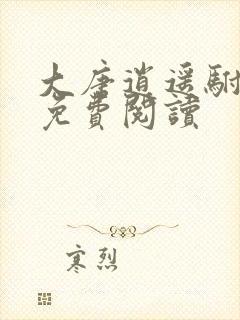 大唐逍遥駙
免費閱讀
寒烈